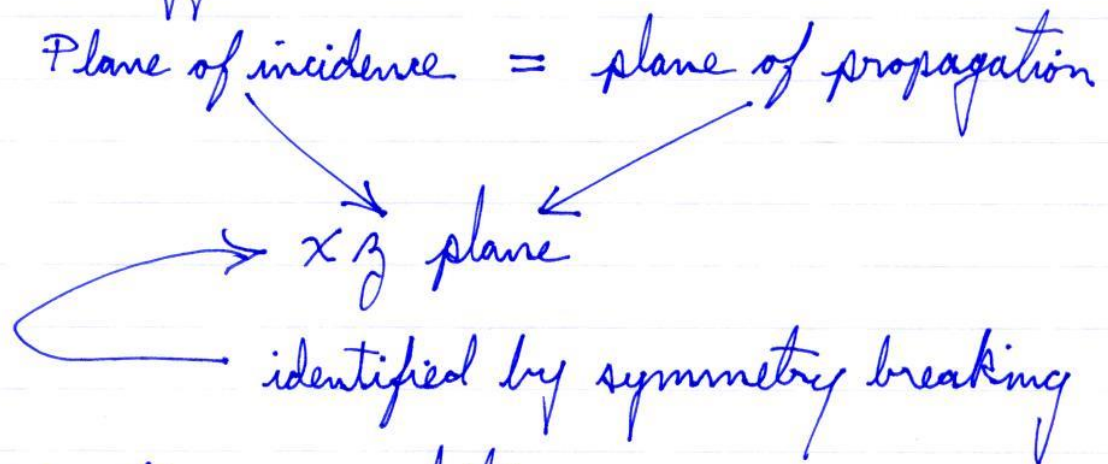 Plane of incidence = plane of propagation
xz plane
identified by symmetry breaking